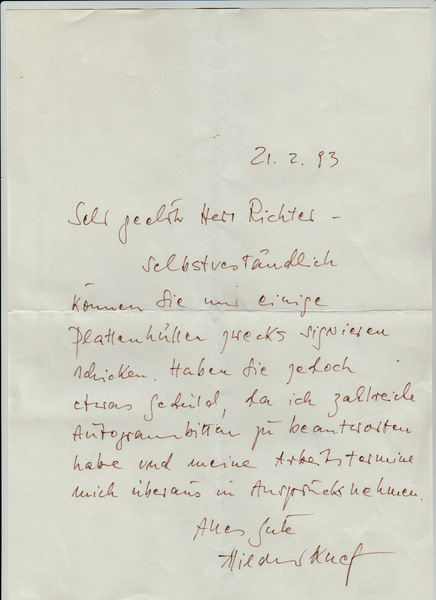 21. 2. 93
Sehr geehrter Herr Richter –
selbstverständlich
können Sie mir einige
Plattenhüllen zwecks signieren
schicken. Haben Sie jedoch
etwas Geduld, da ich zahlreiche
Autogrammbitten zu beantworten
habe und meine Arbeitstermine
mich überaus in Anspruch nehmen.
Alles Gute
Hildegard Knef